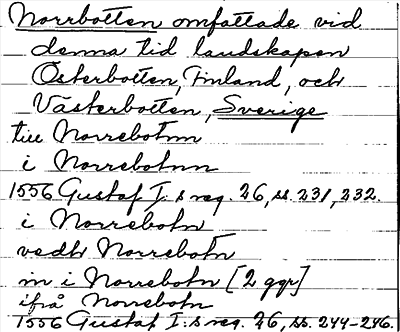 Norrbotten omfattade vid
denna tid landskapen
Österbotten, Finland, och
Västerbotten, Sverige
till Norrebotnn
i Norrebotnn
1556 Gustaf I:s reg. 26, ss. 231, 232.
i Norrebotn
vedh Norrebotn
in i Norrebotn [2 ggr]
ifrå Norrebotn
1556 Gustaf I:s reg. 26, ss. 244-246.